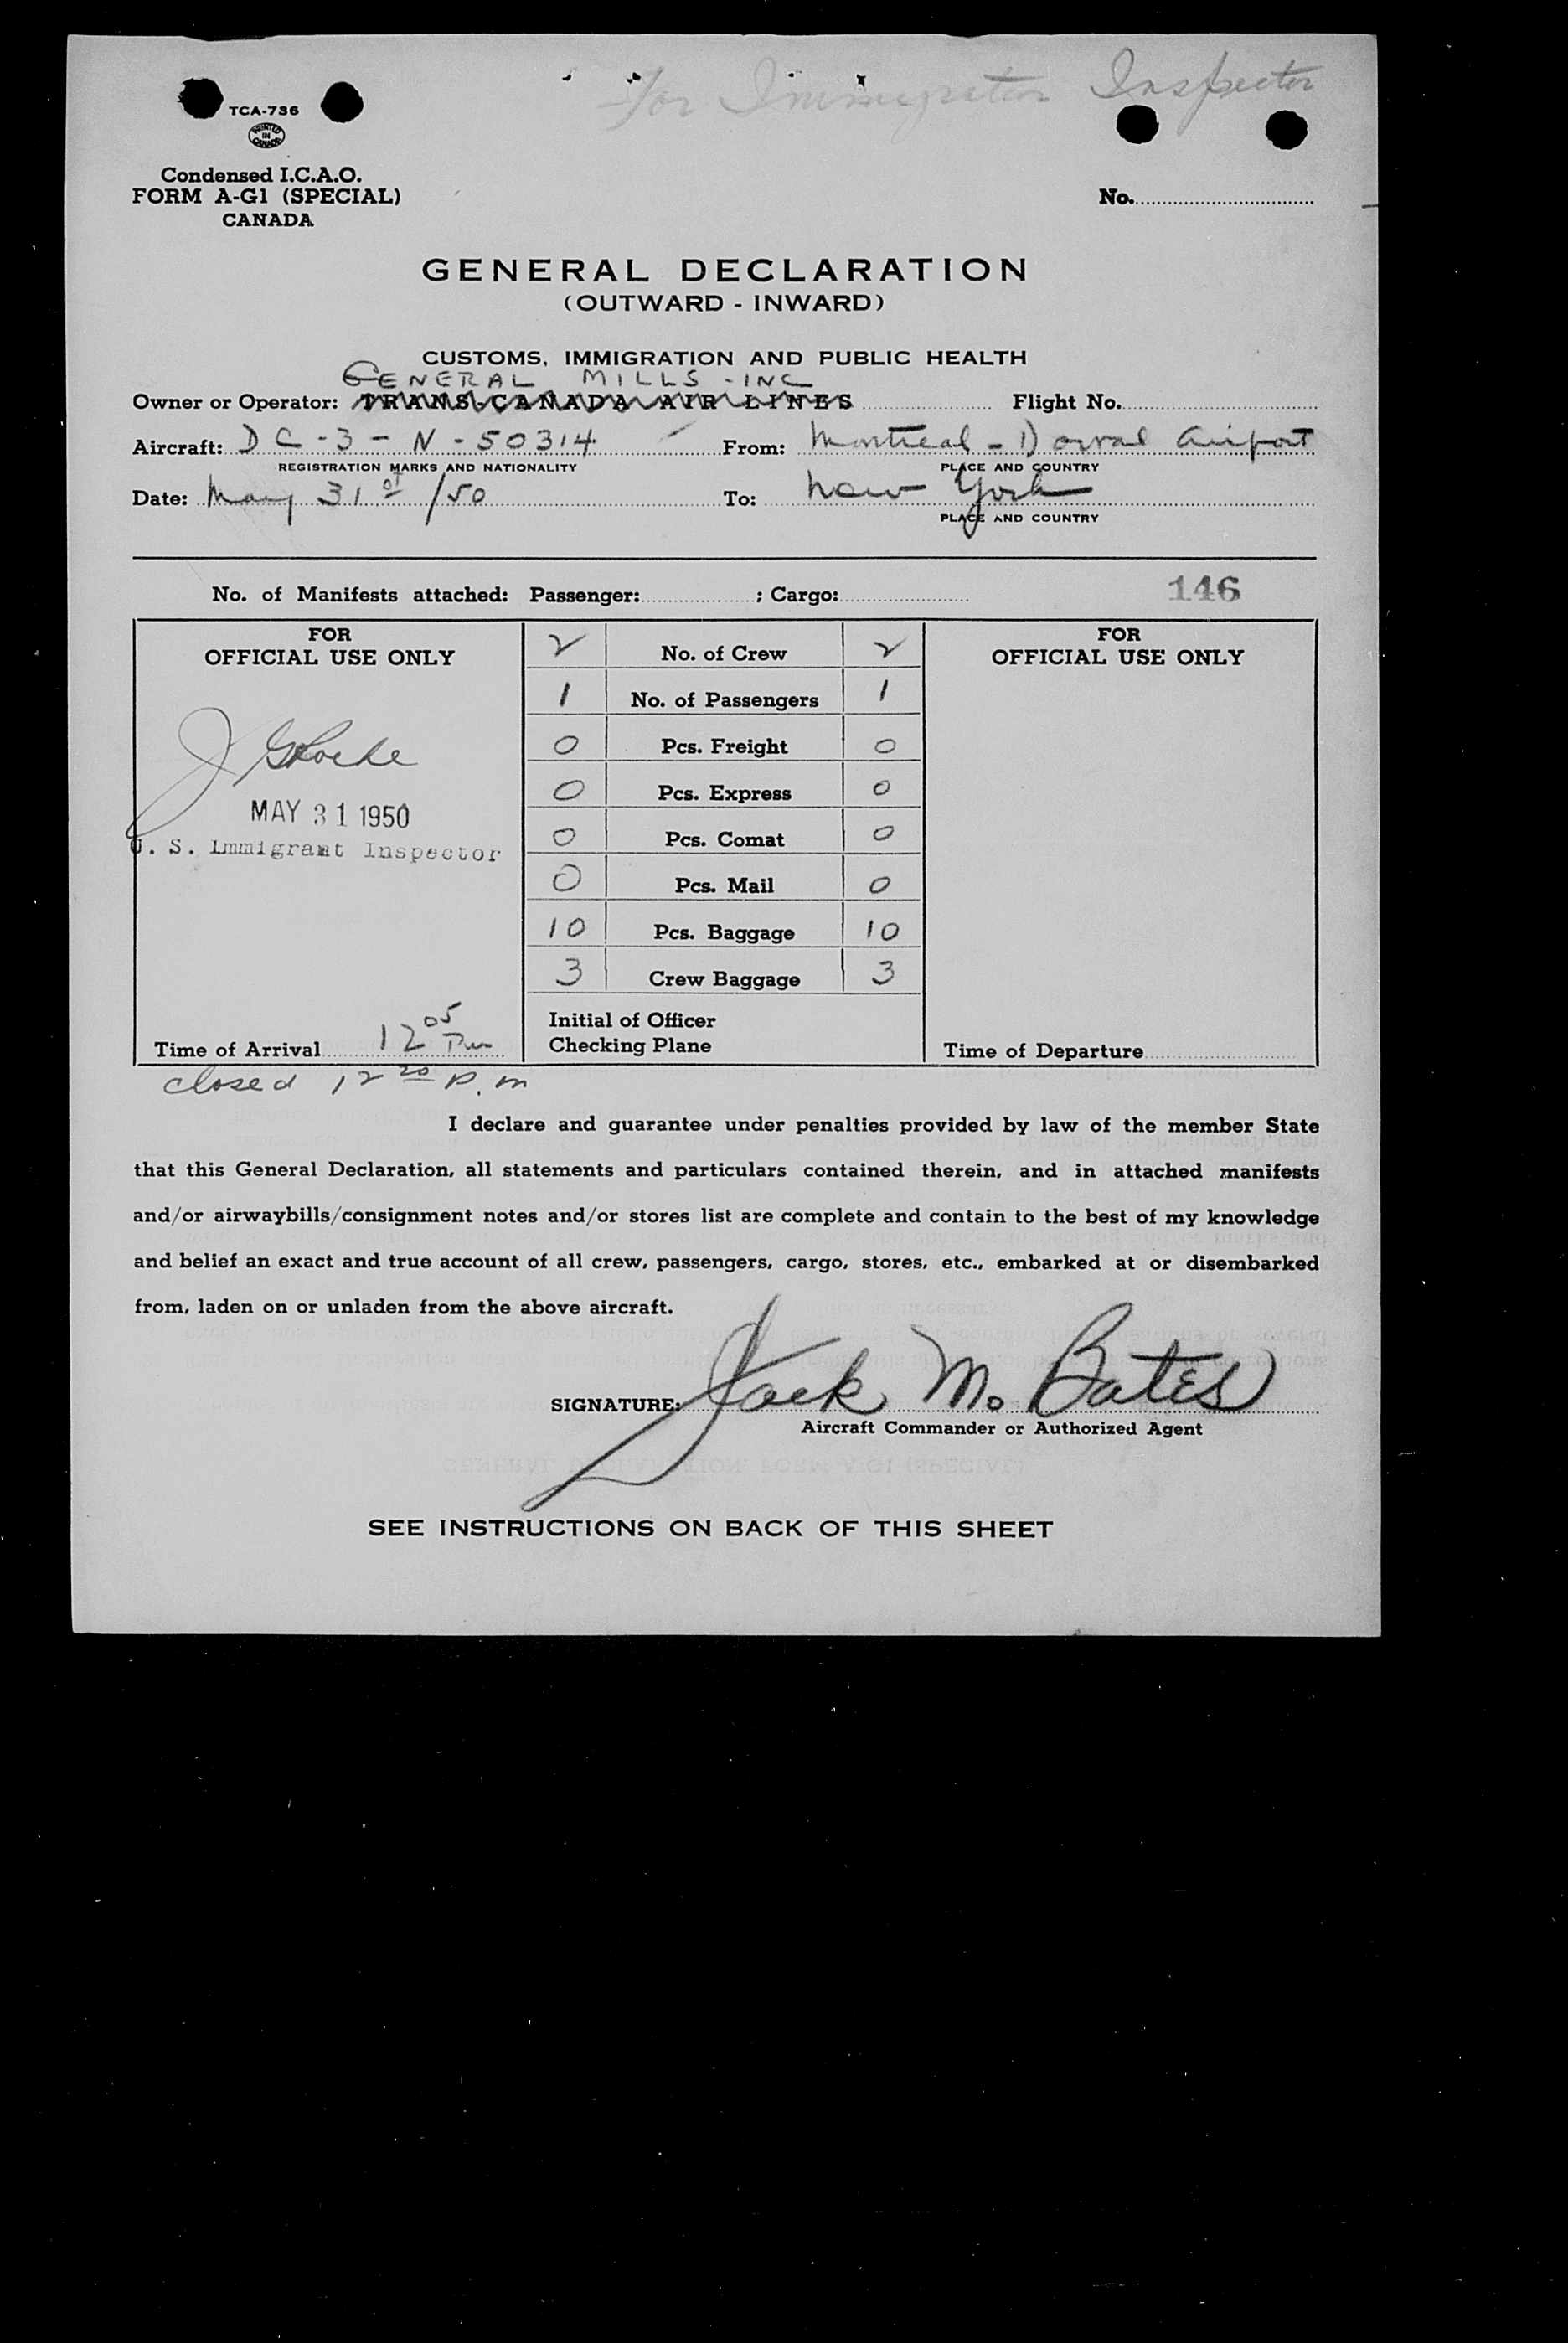 For Immigration Inspector
TCA-736
PRINTED IN CANADA
Condensed I.C.A.O.
FORM A-G1 (SPECIAL)
CANADA
No.
GENERAL DECLARATION
(OUTWARD - INWARD)
CUSTOMS, IMMIGRATION AND PUBLIC HEALTH
GENERAL MILLS - INC
Owner or Operator: TRANS-CANADA AIR LINES Flight No.
Aircraft: DC-3-N-50314 From: Montreal - Dorval Airport
REGISTRATION MARKS AND NATIONALITY PLACE AND COUNTRY
Date: May 31st/50 To: New York
PLACE AND COUNTRY
No. of Manifests attached: Passenger: ; Cargo: 146
FOR
OFFICIAL USE ONLY
MAY 31 1950
U. S. Immigrant Inspector
Time of Arrival 12 05 Pm
closed 12 20 p.m
2 No. of Crew 2
1 No. of Passengers 1
0 Pcs. Freight 0
0 Pcs. Express 0
0 Pcs. Comat 0
0 Pcs. Mail 0
10 Pcs. Baggage 10
3 Crew Baggage 3
Initial of Officer
Checking Plane
FOR
OFFICIAL USE ONLY
Time of Departure
I declare and guarantee under penalties provided by law of the member State
that this General Declaration, all statements and particulars contained therein, and in attached manifests
and/or airwaybills/consignment notes and/or stores list are complete and contain to the best of my knowledge
and belief an exact and true account of all crew, passengers, cargo, stores, etc., embarked at or disembarked
from, laden on or unladen from the above aircraft.
SIGNATURE: Jack M. Bates
Aircraft Commander or Authorized Agent
SEE INSTRUCTIONS ON BACK OF THIS SHEET